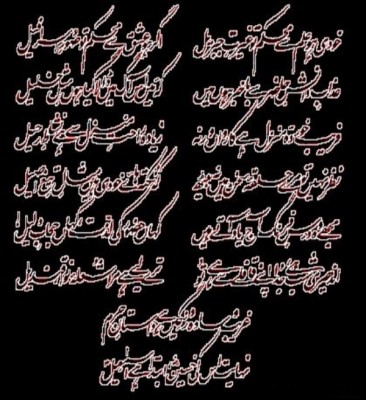 خودی ہو علم سے محکم تو غیرتِ جبریل اگر ہو عشق سے محکم تو صورِ اسرافیل
عذابِ دانشِ حاضر سے باخبر ہوں میں کہ میں اس آگ میں ڈالا گیا ہوں مثلِ خلیل
فریب خوردۂ منزل ہے کارواں ورنہ زیادہ راحتِ منزل سے ہے نشاطِ رحیل
نظر نہیں تو مرے حلقۂ سخن میں نہ بیٹھ کہ نکتہ ہائے خودی ہیں مثالِ تیغِ اصیل
مجھے وہ درسِ فرنگ آج یاد آتے ہیں کہاں حضور کی لذت کہاں حجابِ دلیل!
اندھیری شب ہے جدا اپنے قافلے سے ہے تو ترے لیے ہے مرا شعلۂ نوا قندیل
غریب و سادہ و رنگیں ہے داستانِ حرم
نہایت اس کی حسینؓ ابتدا ہے اسمٰعیلؑ